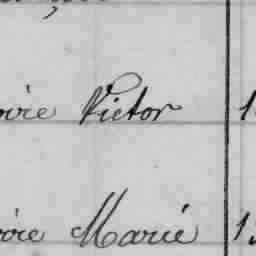 oire Victor 1
oire Marie 1